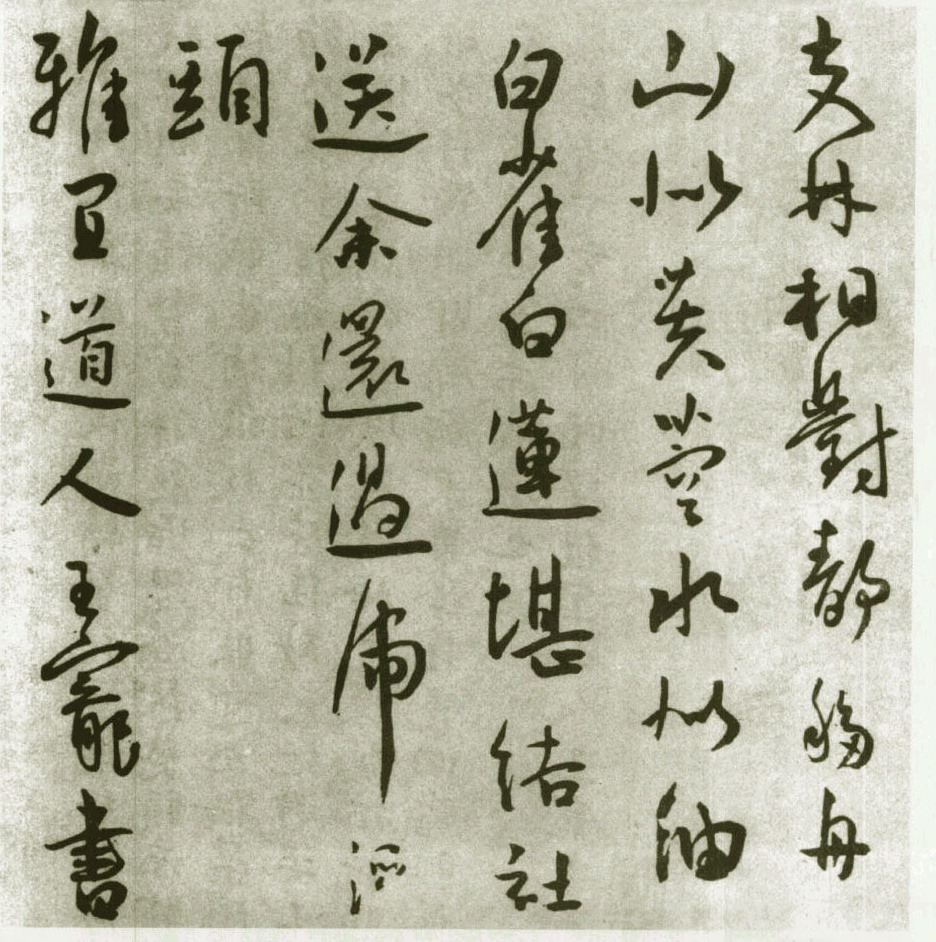 支林相對靜移舟
山似芙蓉水似紬
白雀白蓮堪結社
送余還過虎溪
頭
雅宜道人王寵書